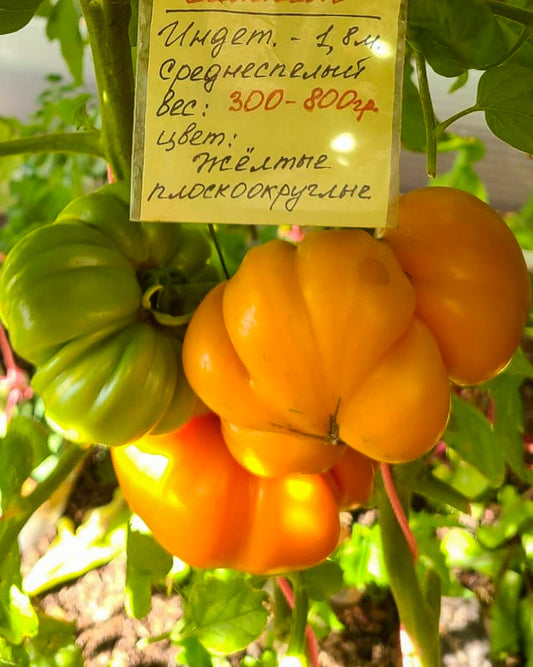 Индет. - 1,8м.
Среднеспелый
вес: 300-800гр.
цвет:
Жёлтые
плоскоокруглые